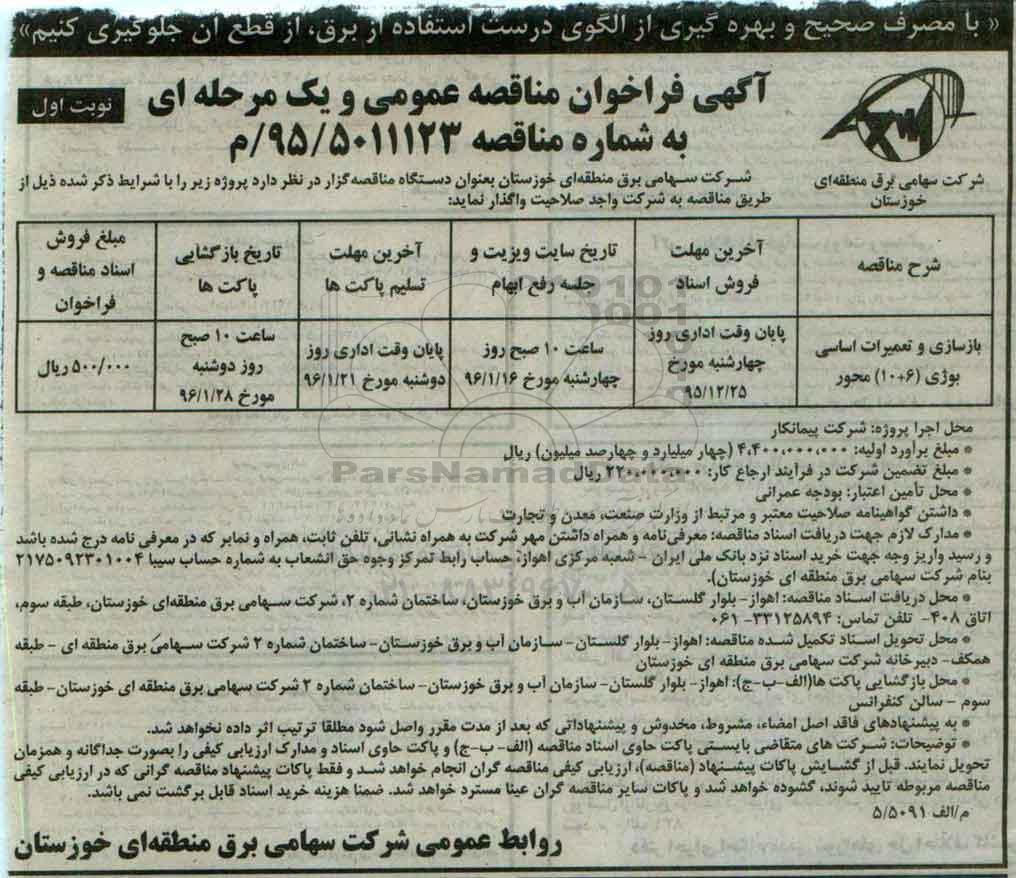 « با مصرف صحیح و بهره گیری از الگوی درست استفاده از برق، از قطع آن جلوگیری کنیم»
آگهی فراخوان مناقصه عمومی و یک مرحله ای
نوبت اول
به شماره مناقصه ۹۵/۵۰۱۱۱۲۳/م
شرکت سهامی برق منطقه‌ای
خوزستان
شرکت سهامی برق منطقه‌ای خوزستان بعنوان دستگاه مناقصه‌گزار در نظر دارد پروژه زیر را با شرایط ذکر شده ذیل از
طریق مناقصه به شرکت واجد صلاحیت واگذار نماید:
شرح مناقصه
آخرین مهلت
فروش اسناد
تاریخ سایت ویزیت و
جلسه رفع ابهام
آخرین مهلت
تسلیم پاکت ها
تاریخ بازگشایی
پاکت ها
مبلغ فروش
اسناد مناقصه و
فراخوان
بازسازی و تعمیرات اساسی
بوژی (۶+۱۰) محور
پایان وقت اداری روز
چهارشنبه مورخ
۹۵/۱۲/۲۵
ساعت ۱۰ صبح روز
چهارشنبه مورخ ۹۶/۱/۱۶
پایان وقت اداری روز
دوشنبه مورخ ۹۶/۱/۲۱
ساعت ۱۰ صبح
روز دوشنبه
مورخ ۹۶/۱/۲۸
۵۰۰/۰۰۰ ریال
محل اجرا پروژه: شرکت پیمانکار
* مبلغ برآورد اولیه: ۴،۴۰۰،۰۰۰،۰۰۰ (چهار میلیارد و چهارصد میلیون) ریال
* مبلغ تضمین شرکت در فرآیند ارجاع کار: ۲۲۰،۰۰۰،۰۰۰ ریال
ParsNamadData
* محل تأمین اعتبار: بودجه عمرانی
* داشتن گواهینامه صلاحیت معتبر و مرتبط از وزارت صنعت، معدن و تجارت
* مدارک لازم جهت دریافت اسناد مناقصه: معرفی‌نامه و همراه داشتن مهر شرکت به همراه نشانی، تلفن ثابت، همراه و نمابر که در معرفی نامه درج شده باشد
و رسید واریز وجه جهت خرید اسناد نزد بانک ملی ایران - شعبه مرکزی اهواز، حساب رابط تمرکز وجوه حق انشعاب به شماره حساب سیبا ۲۱۷۵۰۹۲۳۰۱۰۰۴
بنام شرکت سهامی برق منطقه ای خوزستان).
* محل دریافت اسناد مناقصه: اهواز- بلوار گلستان، سازمان آب و برق خوزستان، ساختمان شماره ۲، شرکت سهامی برق منطقه‌ای خوزستان، طبقه سوم،
اتاق ۴۰۸- تلفن تماس: ۳۳۱۲۵۸۹۴- ۰۶۱
* محل تحویل اسناد تکمیل شده مناقصه: اهواز- بلوار گلستان- سازمان آب و برق خوزستان- ساختمان شماره ۲ شرکت سهامی برق منطقه ای - طبقه
همکف- دبیرخانه شرکت سهامی برق منطقه ای خوزستان
* محل بازگشایی پاکت ها(الف-ب-ج): اهواز- بلوار گلستان- سازمان آب و برق خوزستان- ساختمان شماره ۲ شرکت سهامی برق منطقه ای خوزستان- طبقه
سوم - سالن کنفرانس
* به پیشنهادهای فاقد اصل امضاء، مشروط، مخدوش و پیشنهاداتی که بعد از مدت مقرر واصل شود مطلقا ترتیب اثر داده نخواهد شد.
* توضیحات: شرکت های متقاضی بایستی پاکت حاوی اسناد مناقصه (الف- ب-ج) و پاکت حاوی اسناد و مدارک ارزیابی کیفی را بصورت جداگانه و همزمان
تحویل نمایند. قبل از گشایش پاکات پیشنهاد (مناقصه)، ارزیابی کیفی مناقصه گران انجام خواهد شد و فقط پاکات پیشنهاد مناقصه گرانی که در ارزیابی کیفی
مناقصه مربوطه تایید شوند، گشوده خواهد شد و پاکات سایر مناقصه گران عینا مسترد خواهد شد. ضمنا هزینه خرید اسناد قابل برگشت نمی باشد.
م/الف ۵/۵۰۹۱
روابط عمومی شرکت سهامی برق منطقه‌ای خوزستان